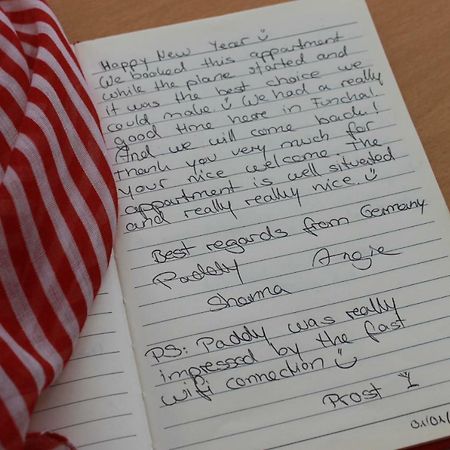 Happy New Year
We booked this appartment
while the plane started and
it was the best choice we
could make. We had a really
good time here in Funchal.
And we will come back!
Thank you very much for
your nice welcome. The
appartment is well situated
and really really nice.
Best regards from Germany
Paddy Angie
Sharma
PS: Paddy was really
impressed by the fast
wifi connection
Prost
01/01/